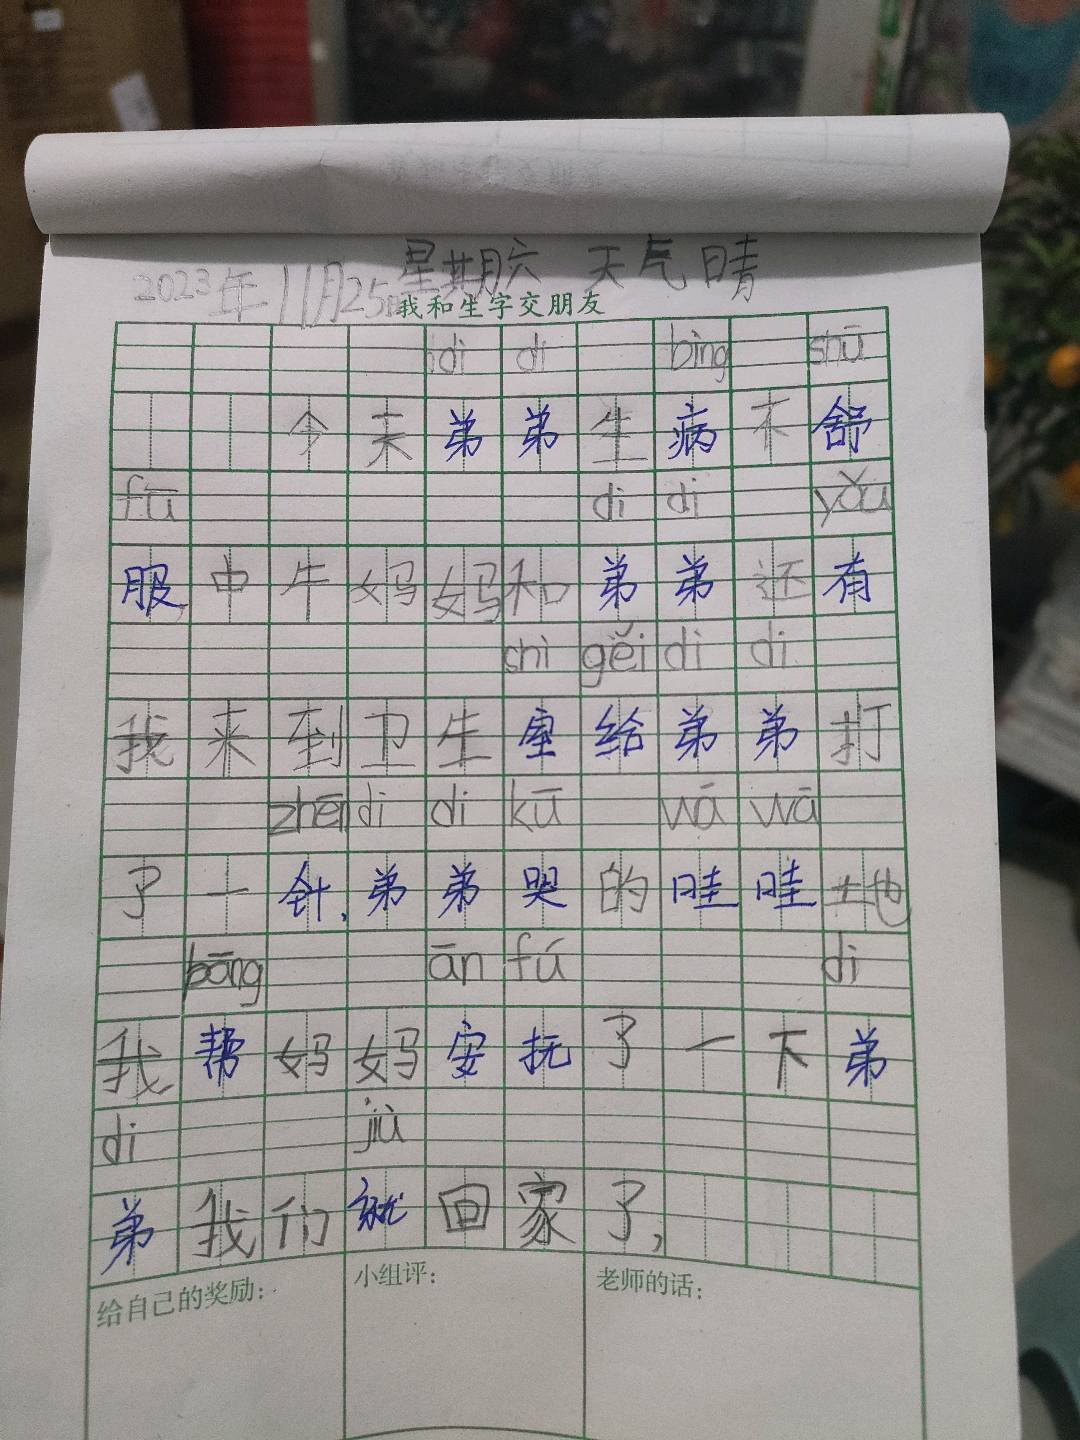 2023年11月25日 星期六 天气晴
我和生字交朋友
di di bìng shū
今天弟弟生病不舒
fū di di yǒu
服,中午妈妈和弟弟还有
shì gěi di di
我来到卫生室给弟弟打
zhēn di di kū wā wā
了一针,弟弟哭的哇哇地
bāng ān fú di
我帮妈妈安抚了一下弟
di jiù
弟我们就回家了,
给自己的奖励: 小组评: 老师的话: